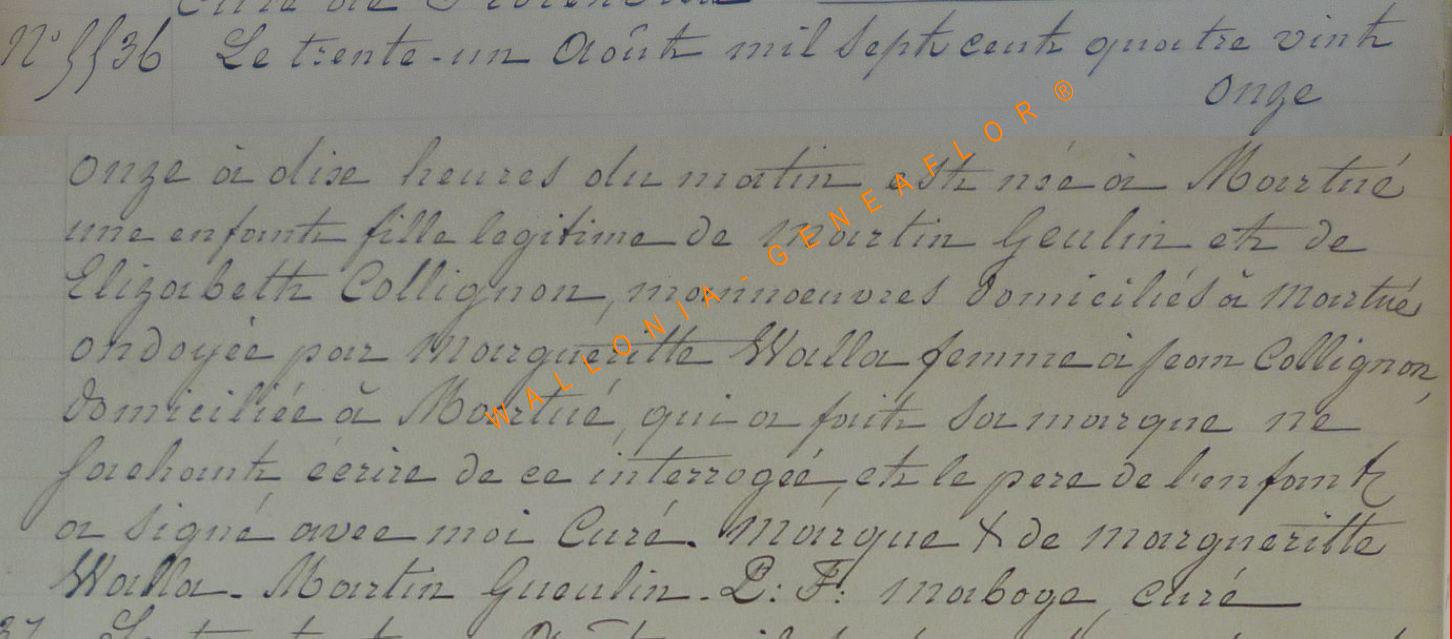 N° 5536 Le trente-un Août mil sept cent quatre vint
onze
onze à dix heures du matin est née à Martué
une enfant fille legitime de Martin Geulin et de
Elizabeth Collignon, mannoeuvres domiciliés à Martué
ondoyée par Margueritte Walla femme à Jean Collignon,
domiciliée à Martué, qui a fait sa marque ne
sachant écrire de ce interrogée, et le pere de l'enfant
a signé avec moi Curé. Marque X de Margueritte
Walla. Martin Gueulin. P: F: Maboge, curé
WALLONIA - GENEAFLOR ®